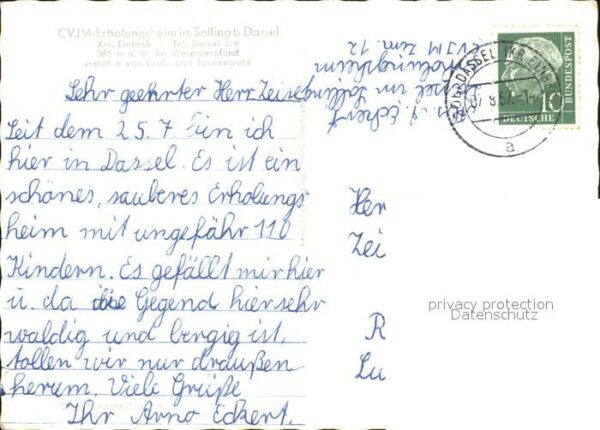 CVJM-Erholungsheim im Solling b. Dassel
Krs. Einbeck - Tel. Dassel 2/9
365 m ü. M. Im Weserbergland
inmitten von Laub- und Tannenwald
Sehr geehrter Herr Zeise
Seit dem 25.7 bin ich
hier in Dassel. Es ist ein
schönes, sauberes Erholungs-
heim mit ungefähr 110
Kindern. Es gefällt mir hier
u. da die Gegend hier sehr
waldig und bergig ist,
tollen wir nur draußen
herum. Viele Grüße
Ihr Arno Eckert.
A. Eckert
Dassel im Solling
Erholungsheim
CVJM Zim. 12
DASSEL
8.57.-14
a
10
DEUTSCHE
BUNDESPOST
Her
Zei
R
Lu
privacy protection
Datenschutz